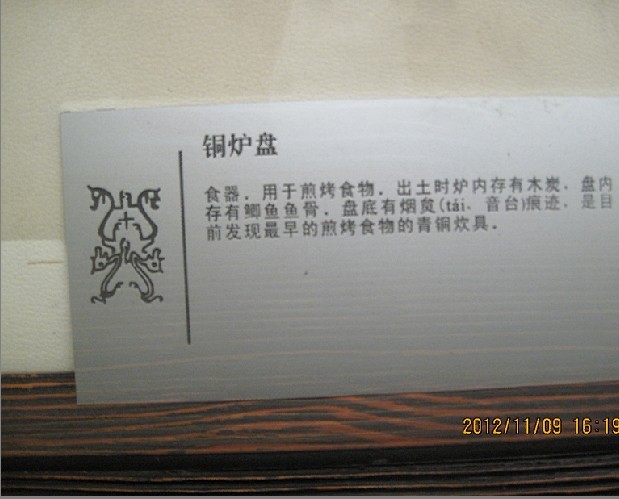 铜炉盘
食器。用于煎烤食物。出土时炉内存有木炭、盘内
存有鲫鱼鱼骨。盘底有烟炱(tái、音台)痕迹、是目
前发现最早的煎烤食物的青铜炊具。
2012/11/09 16:19